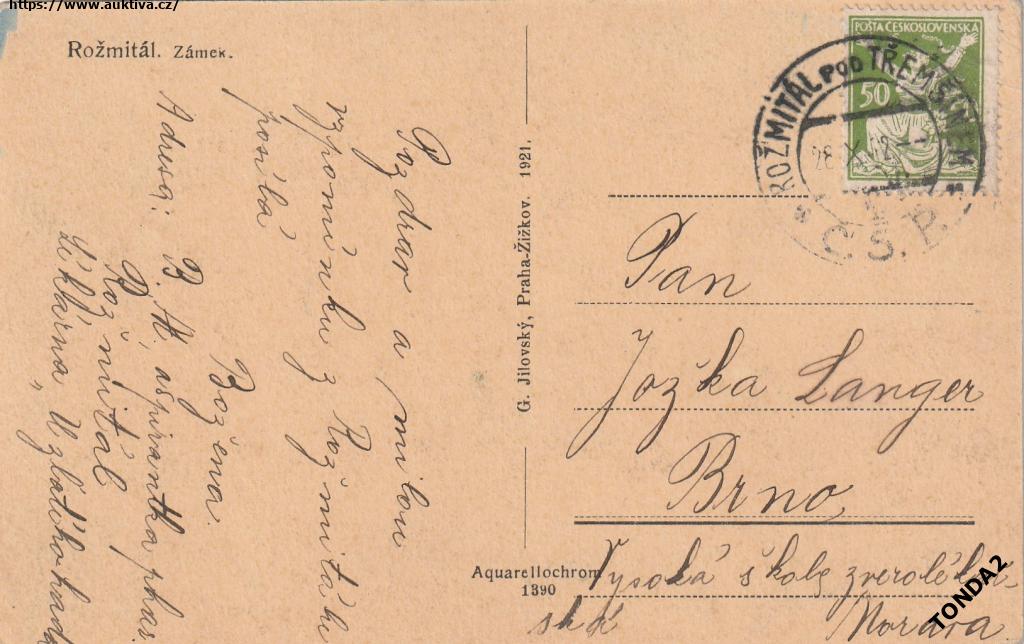 https://www.auktiva.cz/
Rožmitál. Zámek.
Pozdrav a milou
vzpomínku z Rožmitálu
posílá
Božena.
Adresa: B. H. aspirantka phar.
Rožmitál
Lékárna „U zlatého hada
G. Jilovský, Praha-Žižkov. 1921.
Aquarellochrom
1390
POŠTA ČESKOSLOVENSKÁ
50
ROŽMITÁL POD TŘEMŠÍNEM
Č.S.P.
Pan
Jožka Langer
Brno
Vysoká škola zvěrolékař-
ská
Morava
TONDA2